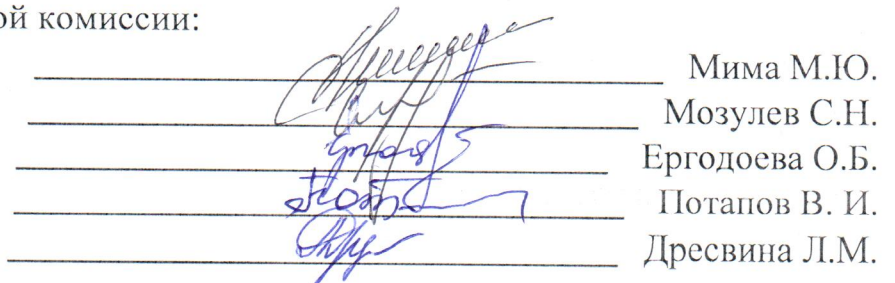 ой комиссии:
Мима М.Ю.
Мозулев С.Н.
Ергодоева О.Б.
Потапов В. И.
Дресвина Л.М.